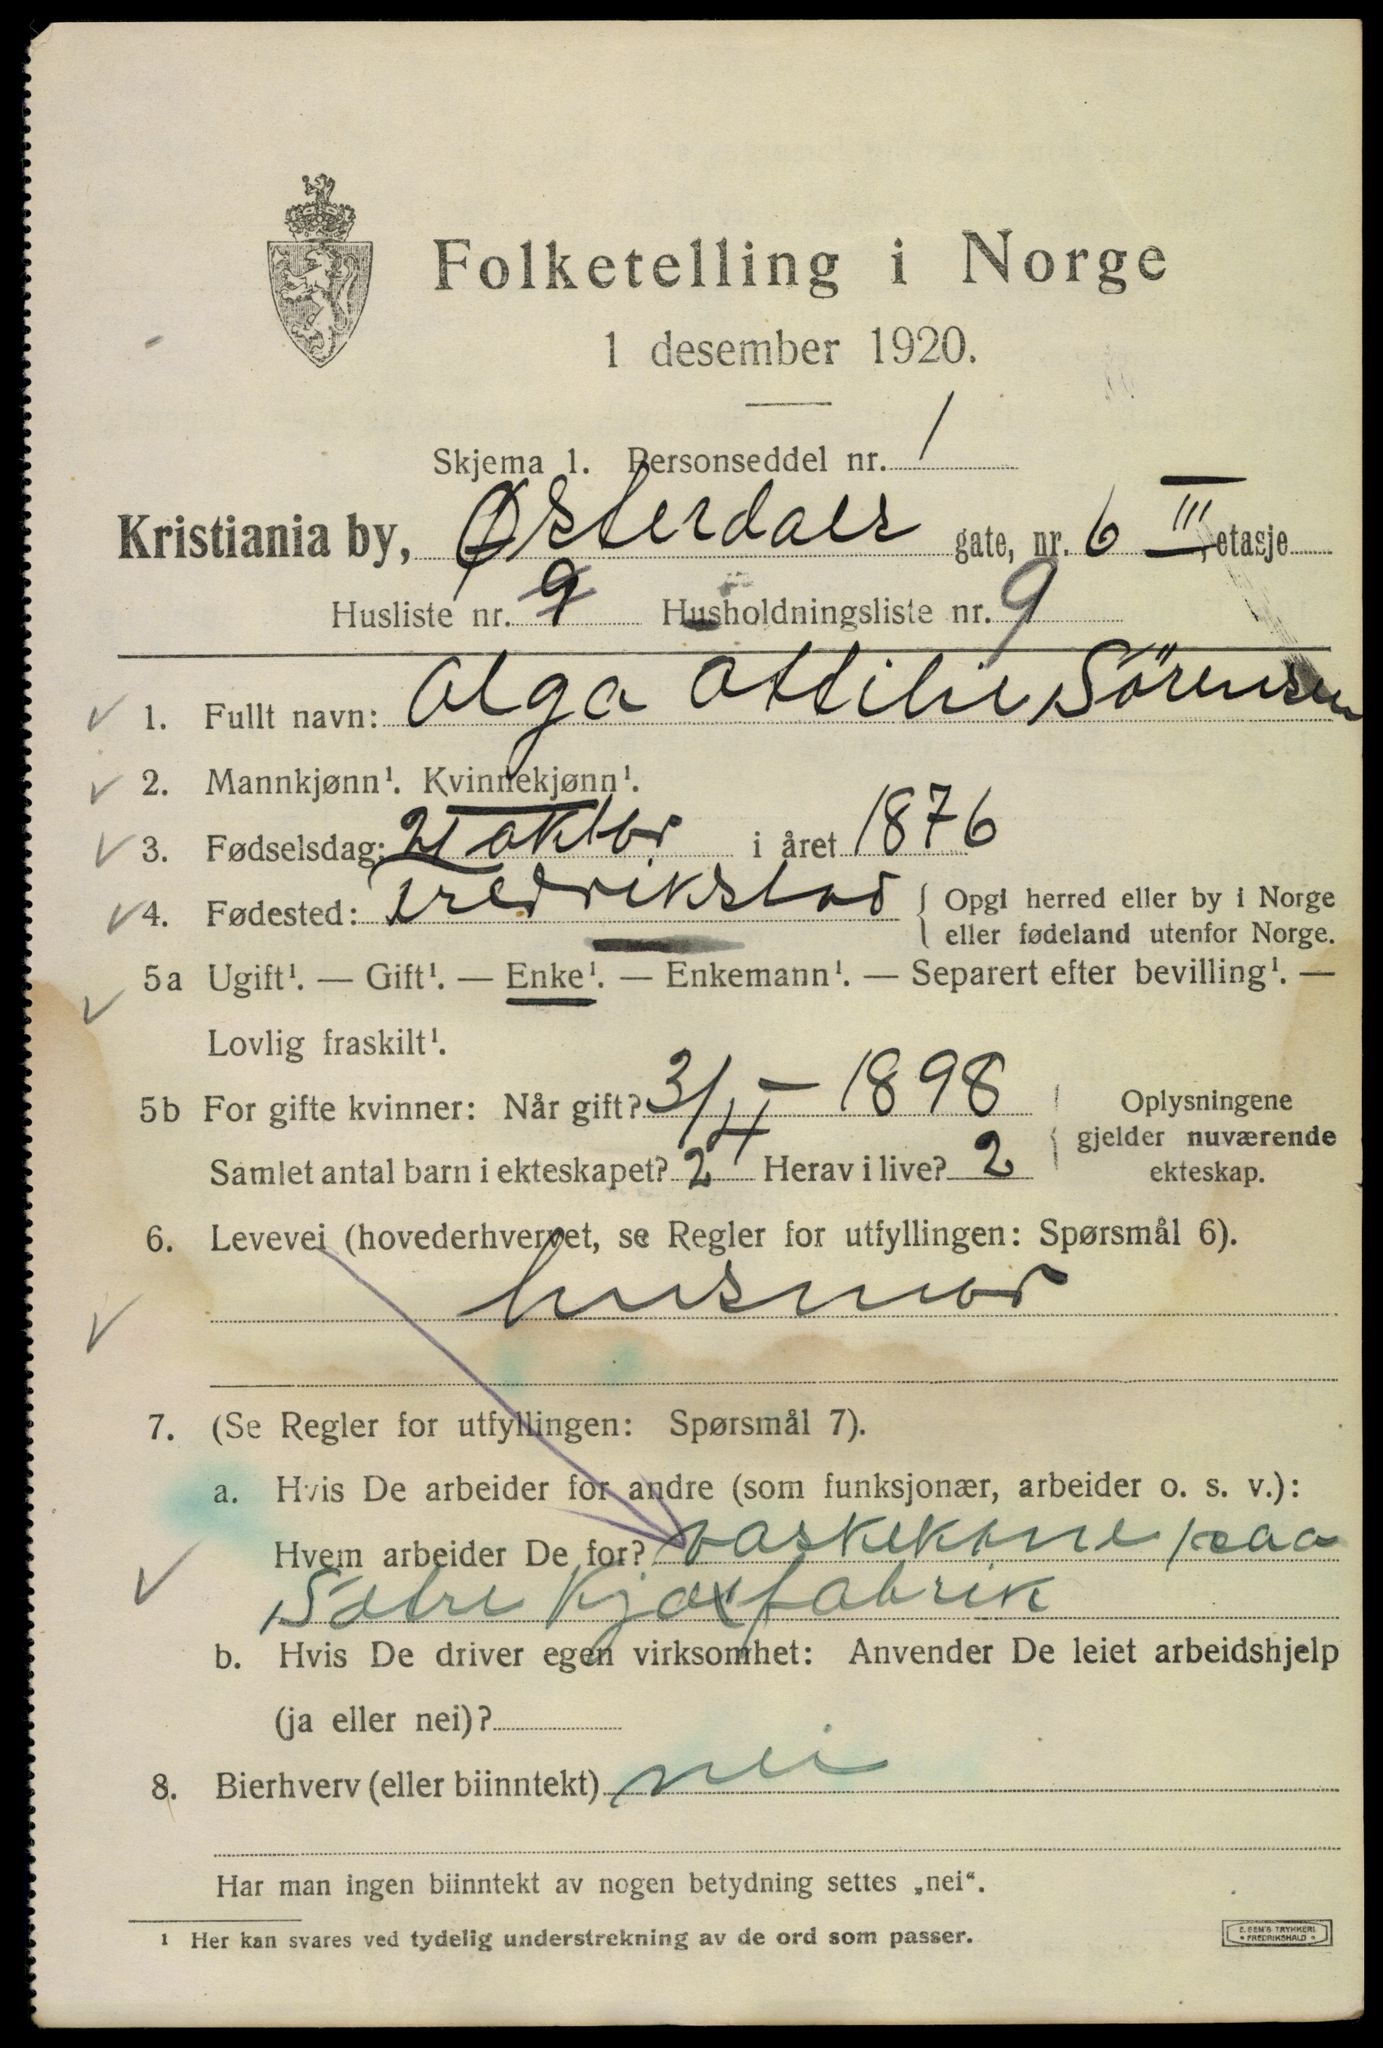 Folketelling i Norge
1 desember 1920.
Skjema 1. Personseddel nr. 1
Kristiania by, Østerdals gate, nr. 6 III, etasje
Husliste nr. 9 Husholdningsliste nr. 9
1. Fullt navn: Olga Ottilie Sörensen
2. Mannkjønn¹. Kvinnekjønn¹.
3. Fødselsdag: 21 oktbr i året 1876
4. Fødested: Fredrikstad { Opgi herred eller by i Norge
eller fødeland utenfor Norge.
5a Ugift¹. — Gift¹. — Enke¹. — Enkemann¹. — Separert efter bevilling¹. —
Lovlig fraskilt¹.
5b For gifte kvinner: Når gift? 3/4 – 1898
Samlet antal barn i ekteskapet? 2 Herav i live? 2
Oplysningene
gjelder nuværende
ekteskap.
6. Levevei (hovederhvervet, se Regler for utfyllingen: Spørsmål 6).
husmor
7. (Se Regler for utfyllingen: Spørsmål 7).
a. Hvis De arbeider for andre (som funksjonær, arbeider o. s. v.):
Hvem arbeider De for? vaskekone paa
Sætre Kjæxfabrik
b. Hvis De driver egen virksomhet: Anvender De leiet arbeidshjelp
(ja eller nei)?
8. Bierhverv (eller biinntekt) nei
Har man ingen biinntekt av nogen betydning settes „nei“.
¹ Her kan svares ved tydelig understrekning av de ord som passer.
E. SEM'S TRYKKERI
FREDRIKSHALD